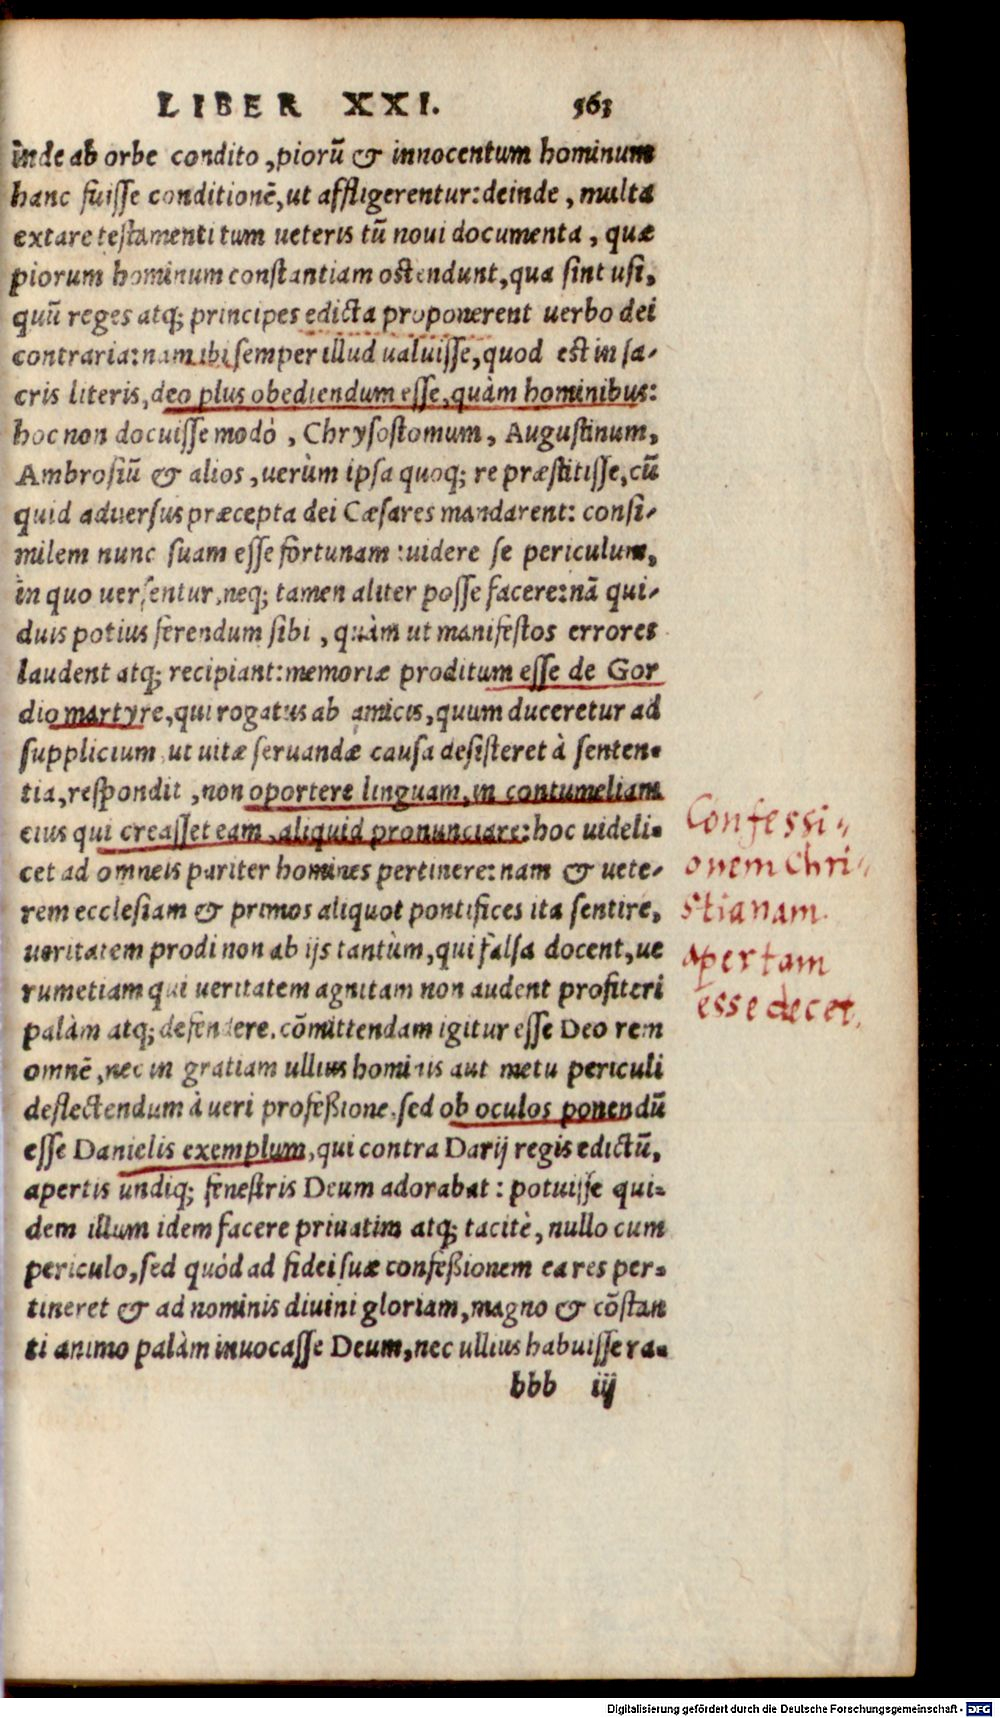 LIBER XXI. 563
inde ab orbe condito, piorū & innocentum hominum
hanc fuisse conditionē, ut affligerentur: deinde, multa
extare testamenti tum ueteris tū noui documenta, quæ
piorum hominum constantiam ostendunt, qua sint usi,
quū reges atq; principes edicta proponerent uerbo dei
contraria: nam ibi semper illud ualuisse, quod est in sa-
cris literis, deo plus obediendum esse, quàm hominibus:
hoc non docuisse modò, Chrysostomum, Augustinum,
Ambrosiū & alios, uerùm ipsa quoq; re præstitisse, cū
quid aduersus præcepta dei Cæsares mandarent: consi-
milem nunc suam esse fortunam: uidere se periculum,
in quo uersentur, neq; tamen aliter posse facere: nā qui-
duis potius ferendum sibi, quàm ut manifestos errores
laudent atq; recipiant: memoriæ proditum esse de Gor
dio martyre, qui rogatus ab amicis, quum duceretur ad
supplicium, ut uitæ seruandæ causa desisteret à senten-
tia, respondit, non oportere linguam, in contumeliam
eius qui creasset eam, aliquid pronunciare: hoc uideli-
cet ad omneis pariter homines pertinere: nam & uete-
rem ecclesiam & primos aliquot pontifices ita sentire,
ueritatem prodi non ab ijs tantùm, qui falsa docent, ue
rumetiam qui ueritatem agnitam non audent profiteri
palàm atq; defendere. cōmittendam igitur esse Deo rem
omnē, nec in gratiam ullius hominis aut metu periculi
deflectendum à ueri profeßione. sed ob oculos ponendū
esse Danielis exemplum, qui contra Darij regis edictū,
apertis undiq; fenestris Deum adorabat: potuisse qui-
dem illum idem facere priuatim atq; tacitè, nullo cum
periculo, sed quòd ad fidei suæ confeßionem ea res per-
tineret & ad nominis diuini gloriam, magno & cōstan
ti animo palàm inuocasse Deum, nec ullius habuisse ra-
bbb iij
Confessi-
onem Chri-
stianam
apertam
esse decet.
Digitalisierung gefördert durch die Deutsche Forschungsgemeinschaft - DFG